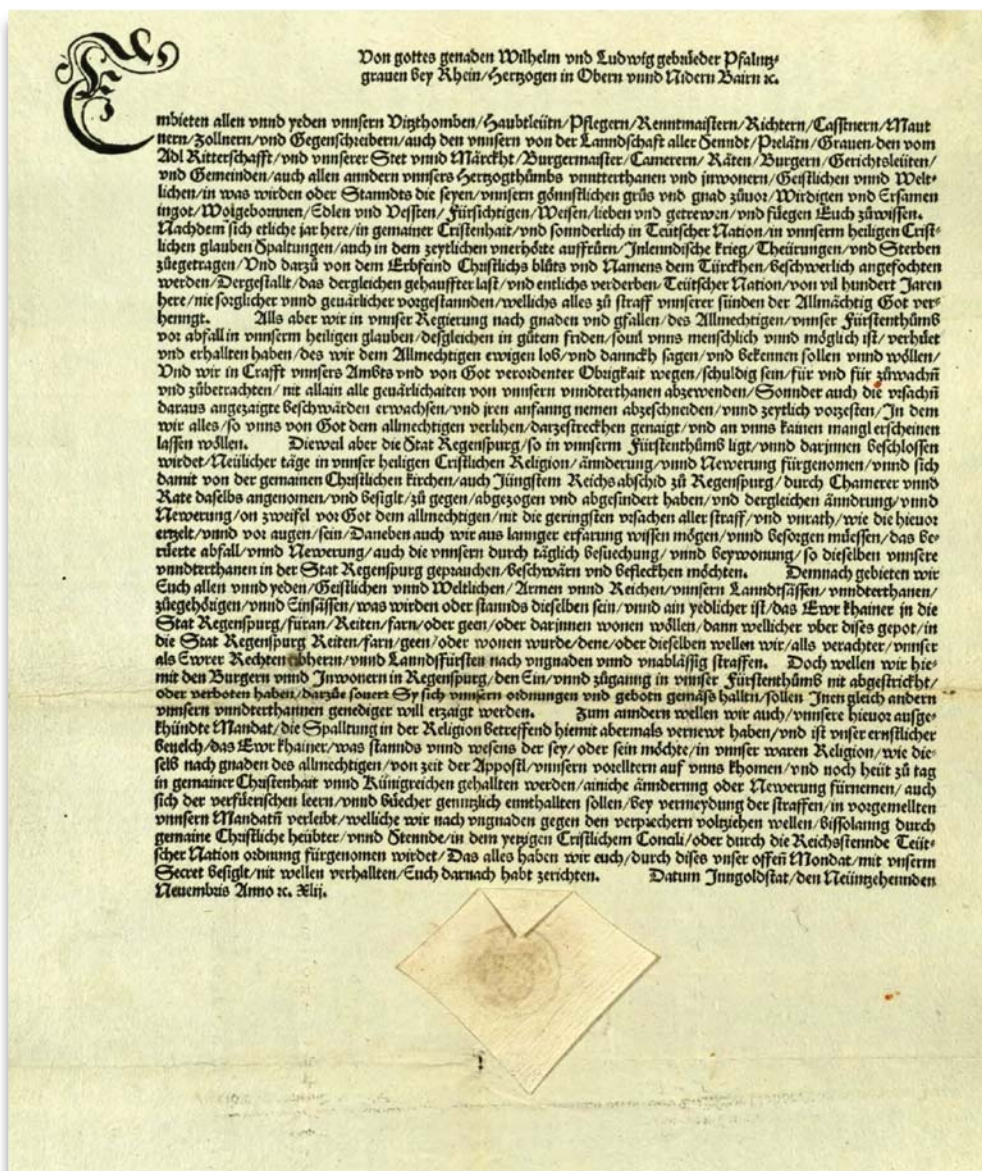 Von gottes genaden Wilhelm vnd Ludwig gebrüeder Pfaltntz-
grauen bey Rhein/Hertzogen in Obern vnnd Nidern Bairn ꝛc.
Embieten allen vnnd yeden vnnsern Vitzthomben/Haubtleütn/Pflegern/Renntmaistern/Richtern/Casstnern/Maut
nern/Zollnern/vnd Gegenschreibern/auch den vnnsern von der Lanndschaft aller Stenndt/Prelatn/Grauen/den vom
Adl Ritterschafft/vnd vnnserer Stet vnnd Märckht/Burgermaister/Camerern/Räten/Burgern/Gerichtsleüten/
vnd Gemeinden/auch allen anndern vnnsers Hertzogthümbs vnntterthanen vnd jnwonern/Geistlichen vnnd Welt-
lichen/in was wirden oder Stanndts die seyen/vnnsern gönnstlichen grüs vnd gnad züuor/Wirdigen vnd Ersamen
ingot/Wolgebornnen/Edlen vnd Vessten/Fürsichtigen/Weisen/lieben vnd getrewen/vnd füegen Euch züwissen.
Nachdem sich etliche jar here/in gemainer Cristenhait/vnd sonnderlich in Teütscher Nation/in vnnserm heiligen Crist-
lichen glauben Spaltungen/auch in dem zeytlichen vnerhörte auffrürn/Inlenndische krieg/Theürungen/vnd Sterben
züegetragen/Vnd darzü von dem Erbfeind Christlichs blüts vnd Namens dem Türckhen/beschwerlich angefochten
werden/Dergestallt/das dergleichen gehauffter last/vnd entlichs verderben/Teütscher Nation/von vil hundert Jaren
here/nie sorglicher vnnd geuärlicher vorgestannden/wellichs alles zü straff vnnserer sünden der Allmächtig Got ver-
henngt. Alls aber wir in vnnser Regierung nach gnaden vnd gfallen/des Allmechtigen/vnnser Fürstenthümb
vor abfall in vnnserm heiligen glauben/desgleichen in gütem friden/souil vnns menschlich vnnd möglich ist/verhüet
vnd erhallten haben/des wir dem Allmechtigen ewigen lob/vnd dannckh sagen/vnd bekennen sollen vnnd wöllen/
Vnd wir in Crafft vnnsers Ambts vnd von Got verordenter Obrigkait wegen/schuldig sein/für vnd für züwachn̄
vnd zübetrachten/nit allain alle geuärlichaiten von vnnsern vnndterthanen abzewenden/Sonnder auch die vrsachn̄
daraus angezaigte beschwärden erwachsen/vnd jren anfanng nemen abzeschneiden/vnnd zeytlich vorzesten/In dem
wir alles/so vnns von Got dem allmechtigen verlihen/darzestreckhen genaigt/vnd an vnns kainen mangl erscheinen
lassen wöllen. Dieweil aber die Stat Regenspurg/so in vnnserm Fürstenthümb ligt/vnnd darjnnen beschlossen
wirdet/Neülicher täge in vnnser heiligen Cristlichen Religion/ännderung/vnnd Newerung fürgenomen/vnnd sich
damit von der gemainen Christlichen kirchen/auch Jüngstem Reichs abschid zü Regenspurg/durch Chamerer vnnd
Rate daselbs angenomen/vnd besiglt/zü gegen/abgezogen vnd abgesindert haben/vnd dergleichen änndrung/vnnd
Newerung/on zweifel vor Got dem allmechtigen/nit die geringsten vrsachen aller straff/vnd vnrath/wie die hieuor
ertzelt/vnnd vor augen/sein/Daneben auch wir aus lanniger erfarung wissen mögen/vnnd besorgen müessen/das be-
rüerte abfall/vnnd Newerung/auch die vnnsern durch täglich besüechung/vnnd beywonung/so dieselben vnnsere
vnndterthanen in der Stat Regenspurg geprauchen/beschwärn vnd befleckhen möchten. Demnach gebieten wir
Euch allen vnnd yeden/Geistlichen vnnd Weltlichen/Armen vnnd Reichen/vnnsern Lanndtsässen/vnndterthanen/
züegehörigen/vnnd Einsässen/was wirden oder stannds dieselben sein/vnnd ain yedlicher ist/das Ewr khainer in die
Stat Regenspurg/füran/Reiten/farn/oder geen/oder darjnnen wonen wöllen/dann wellicher vber dises gepot/in
die Stat Regenspurg Reiten/farn/geen/oder wonen wurde/dene/oder dieselben wellen wir/alls verachter/vnnser
als Ewrer Rechten bherrn/vnnd Lanndsfürsten nach vngnaden vnnd vnablässig straffen. Doch wellen wir hie-
mit den Burgern vnnd Jnwonern in Regenspurg/den Ein/vnnd züganng in vnnser Fürstenthümb nit abgestrickht/
oder verboten haben/darzüe souert Sy sich vnnsern ordnungen vnd gebotn gemäss halltn/sollen Jnen gleich andern
vnnsern vnndterthannen genediger will erzaigt werden. Zum anndern wellen wir auch/vnnsere hieuor ausge-
khündte Mandat/die Spalltung in der Religion betreffend hiemit abermals vernewt haben/vnd ist vnser ernstlicher
beuelch/das Ewr khainer/was stannds vnnd wesens der sey/oder sein möchte/in vnnser waren Religion/wie die-
selb nach gnaden des allmechtigen/von zeit der Appostl/vnnsern vorelltern auf vnns khomen/vnd noch heüt zü tag
in gemainer Christenhait vnnd Künigreichen gehallten werden/ainiche ännderung oder Newerung fürnemen/auch
sich der verfüerischen leern/vnnd büecher genntzlich ennthallten sollen/bey vermeydung der straffen/in vorgemellten
vnnsern Mandatn̄ verleibt/welliche wir nach vngnaden gegen den verprechern voltziehen wellen/bissolanng durch
gemaine Christliche heübter/vnnd Stennde/in dem yetzigen Cristlichem Concili/oder durch die Reichsstennde Teüt-
scher Nation ordnung fürgenomen wirdet/Das alles haben wir euch/durch dises vnser offen̄ Mondat/mit vnserm
Secret besiglt/nit wellen verhallten/Euch darnach habt zerichten. Datum Jnngoldstat/den Neüntzehennden
Nouembris Anno ꝛc. Xlij.